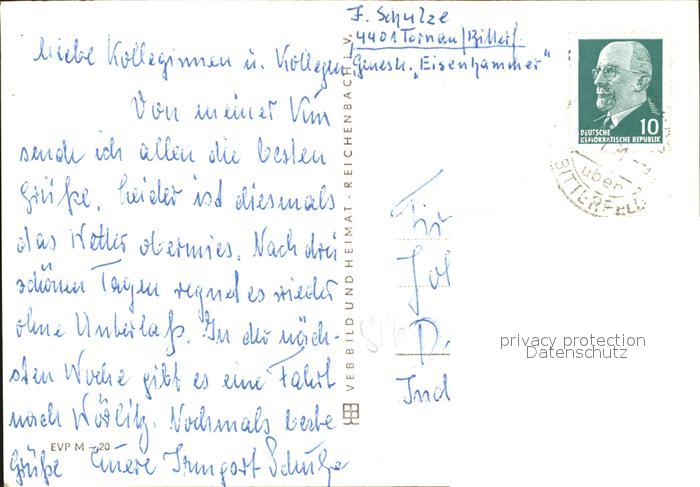 F. Schulze
4401 Tornau/Bitterf.
Genesh. „Eisenhammer"
Liebe Kolleginnen u. Kollegen,
Von meiner Kur
sende ich allen die besten
Grüße. Leider ist diesmals
das Wetter obermies. Nach drei
schönen Tagen regnet es wieder
ohne Unterlaß. In der näch-
sten Woche gibt es eine Fahrt
nach Wörlitz. Nochmals beste
Grüße Eure Irmgart Schulze
EVP M -,20
VEB BILD UND HEIMAT · REICHENBACH i. V.
DEUTSCHE
DEMOKRATISCHE REPUBLIK
10
über
BITTERFELD
privacy protection
Datenschutz